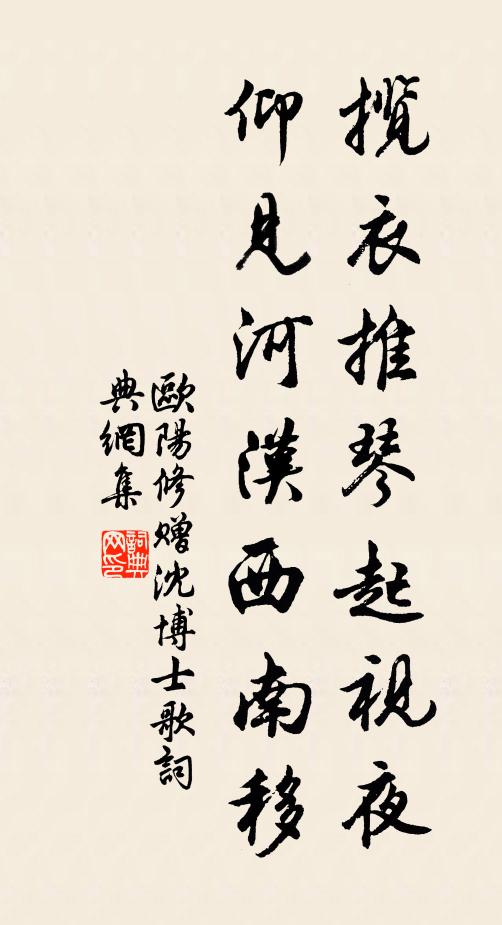 攬衣推琴起視夜
仰見河漢西南移
歐陽修贈沈博士歌詞
典網集
詞典
网印